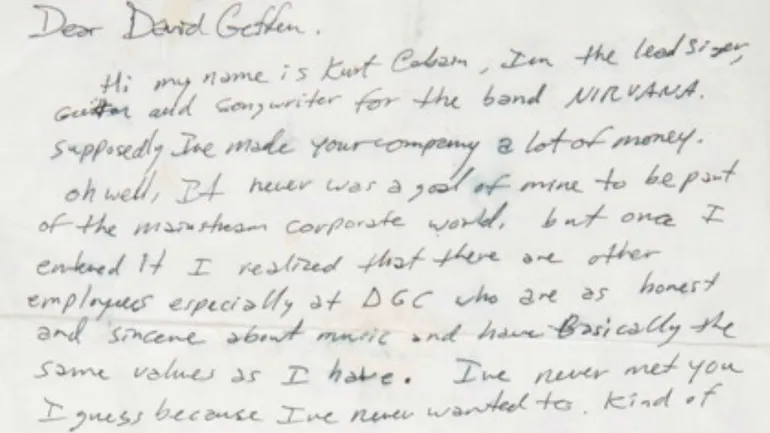 Dear David Geffen.
Hi my name is Kurt Cobain, Im the lead singer,
Guitar and songwriter for the band NIRVANA.
supposedly Ive made your company a lot of money.
oh well, It never was a goal of mine to be part
of the mainstream corporate world. but once I
entered It I realized that there are other
employees especially at DGC who are as honest
and sincere about music and have Basically the
same values as I have. Ive never met you
I guess because Ive never wanted to. Kind of